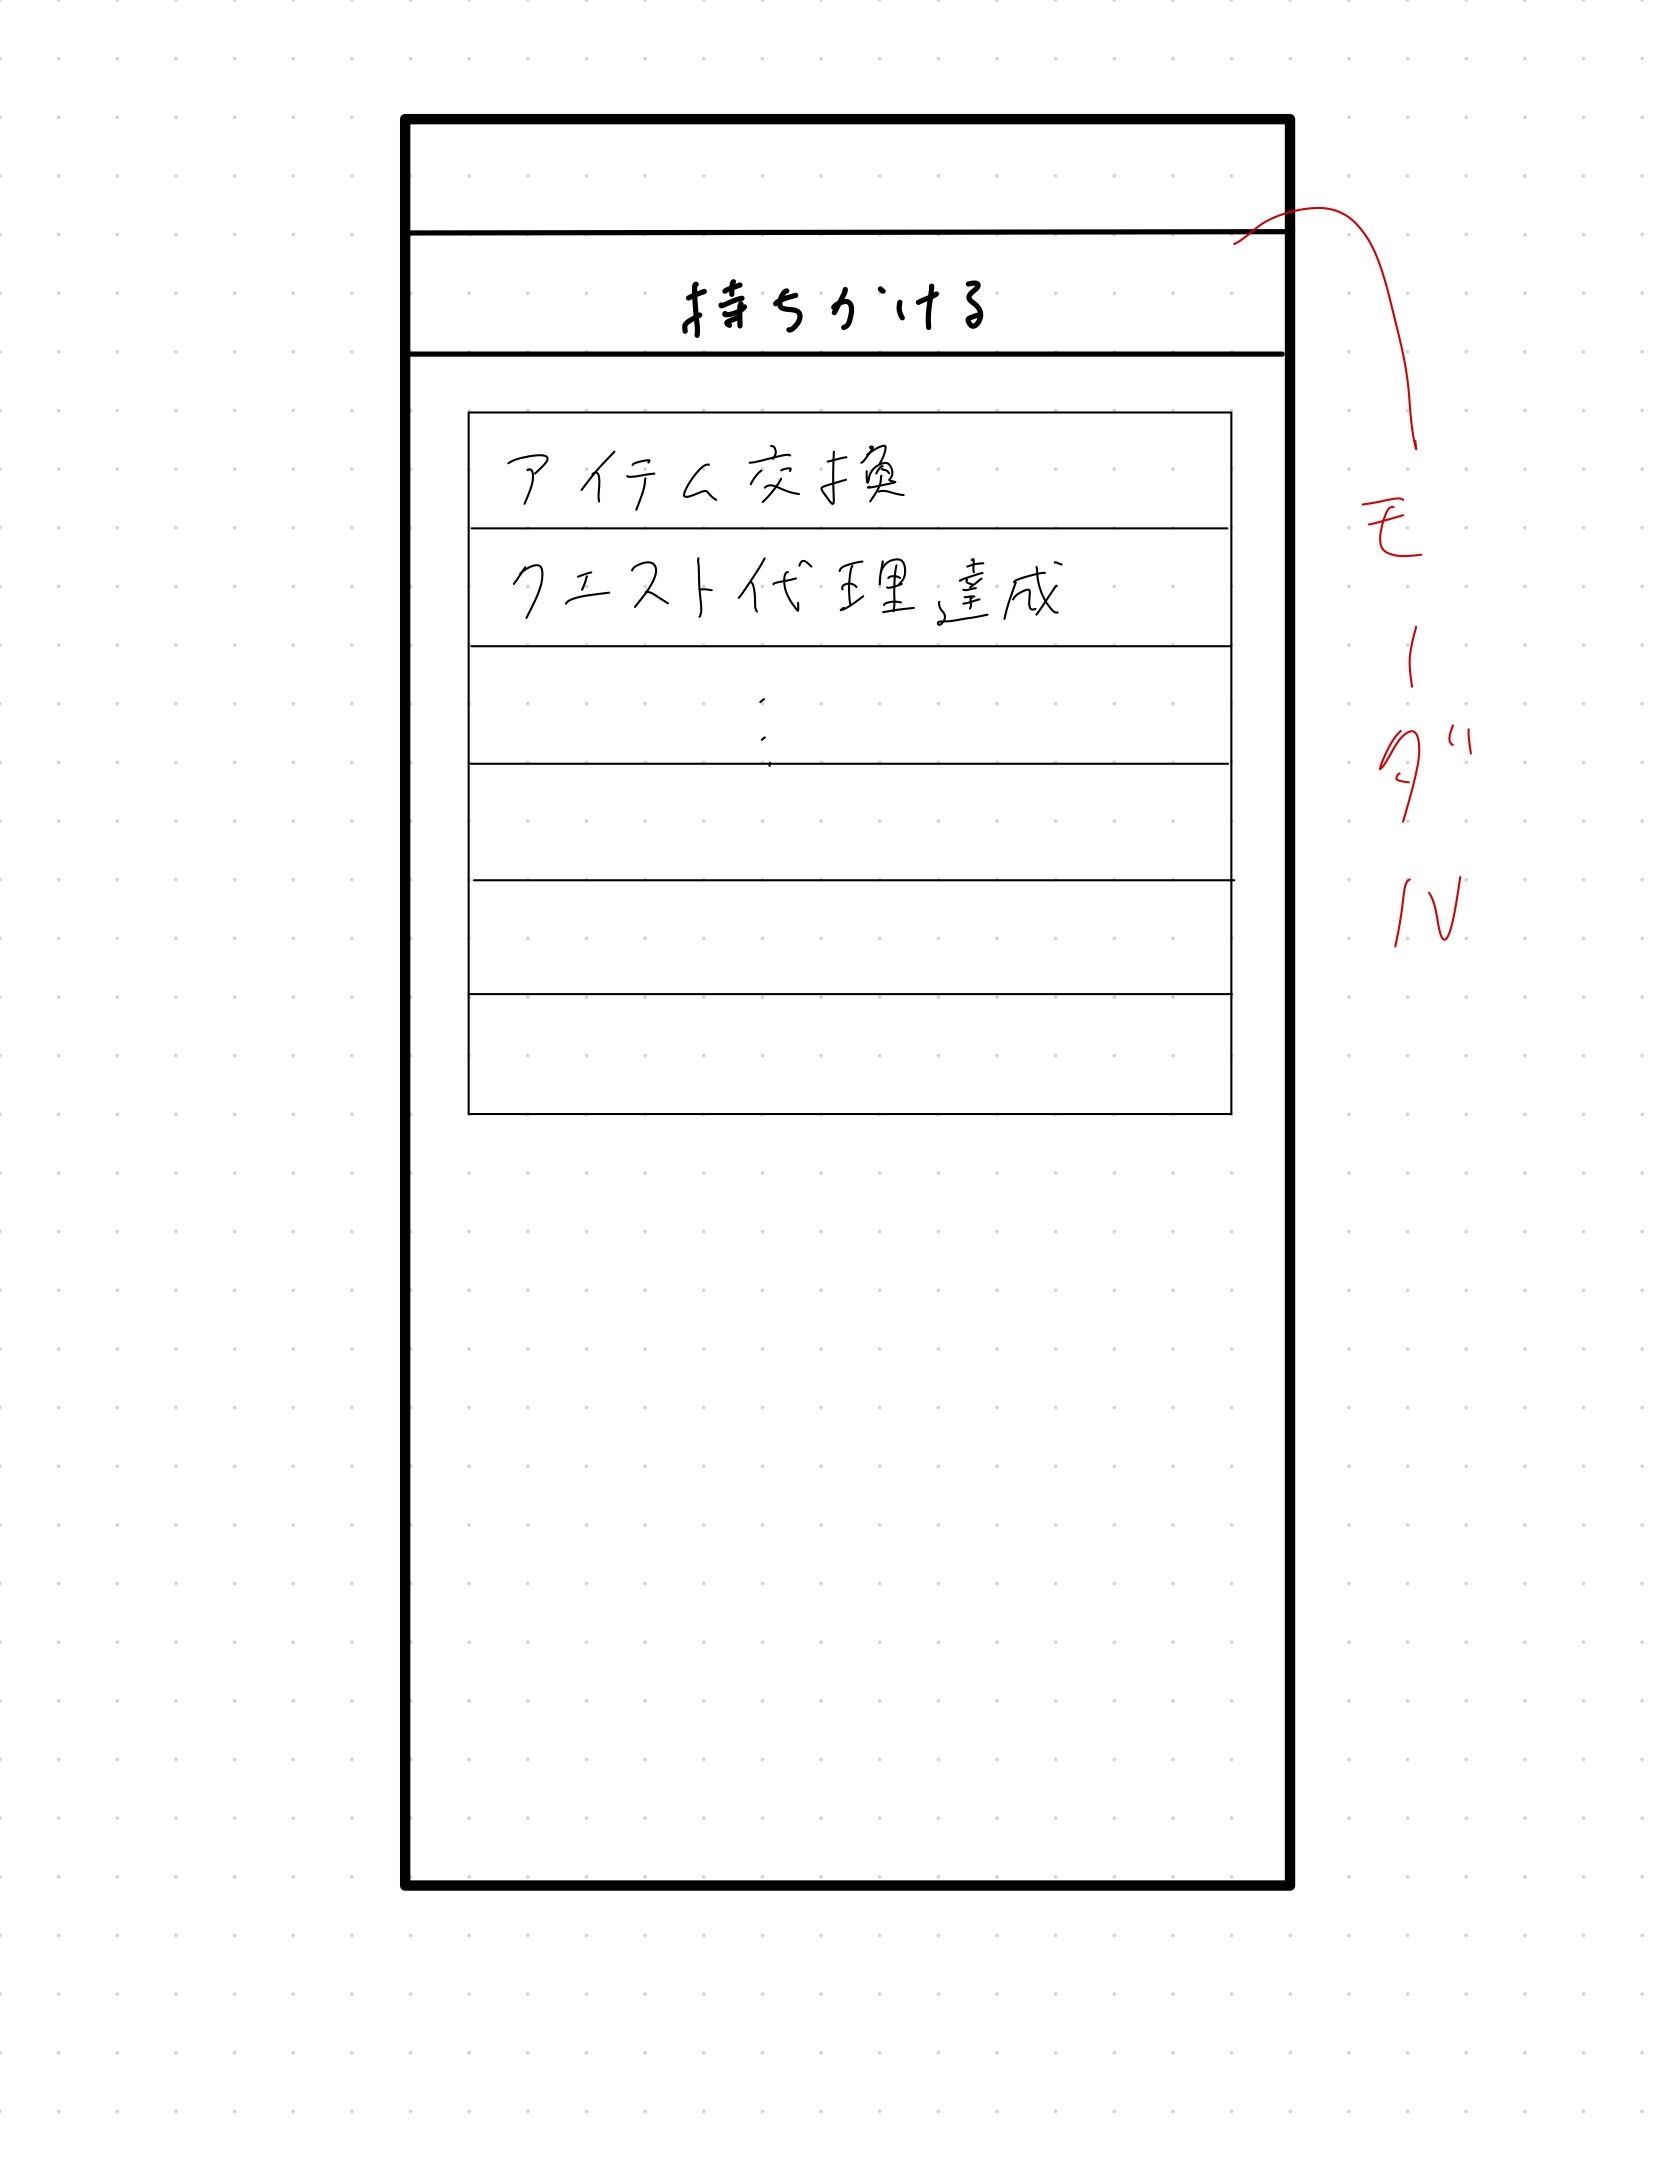 持ちかける
アイテム交換
クエスト代理達成
:
モーダル